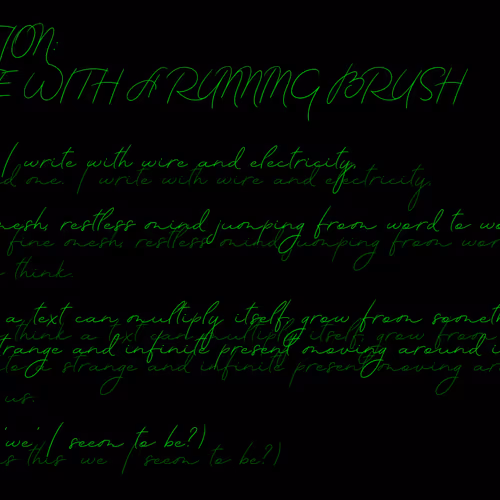 ION:
E WITH A RUNNING BRUSH
I write with wire and electricity,
d me. I write with wire and electricity,
mesh, restless mind jumping from word to wo
fine mesh, restless mind jumping from wor
think.
a text can multiply itself, grow from someth
think a text can multiply itself, grow from
trange and infinite present moving around i
to a strange and infinite present moving ar
us.
'we' I seem to be?)
is this 'we' I seem to be?)